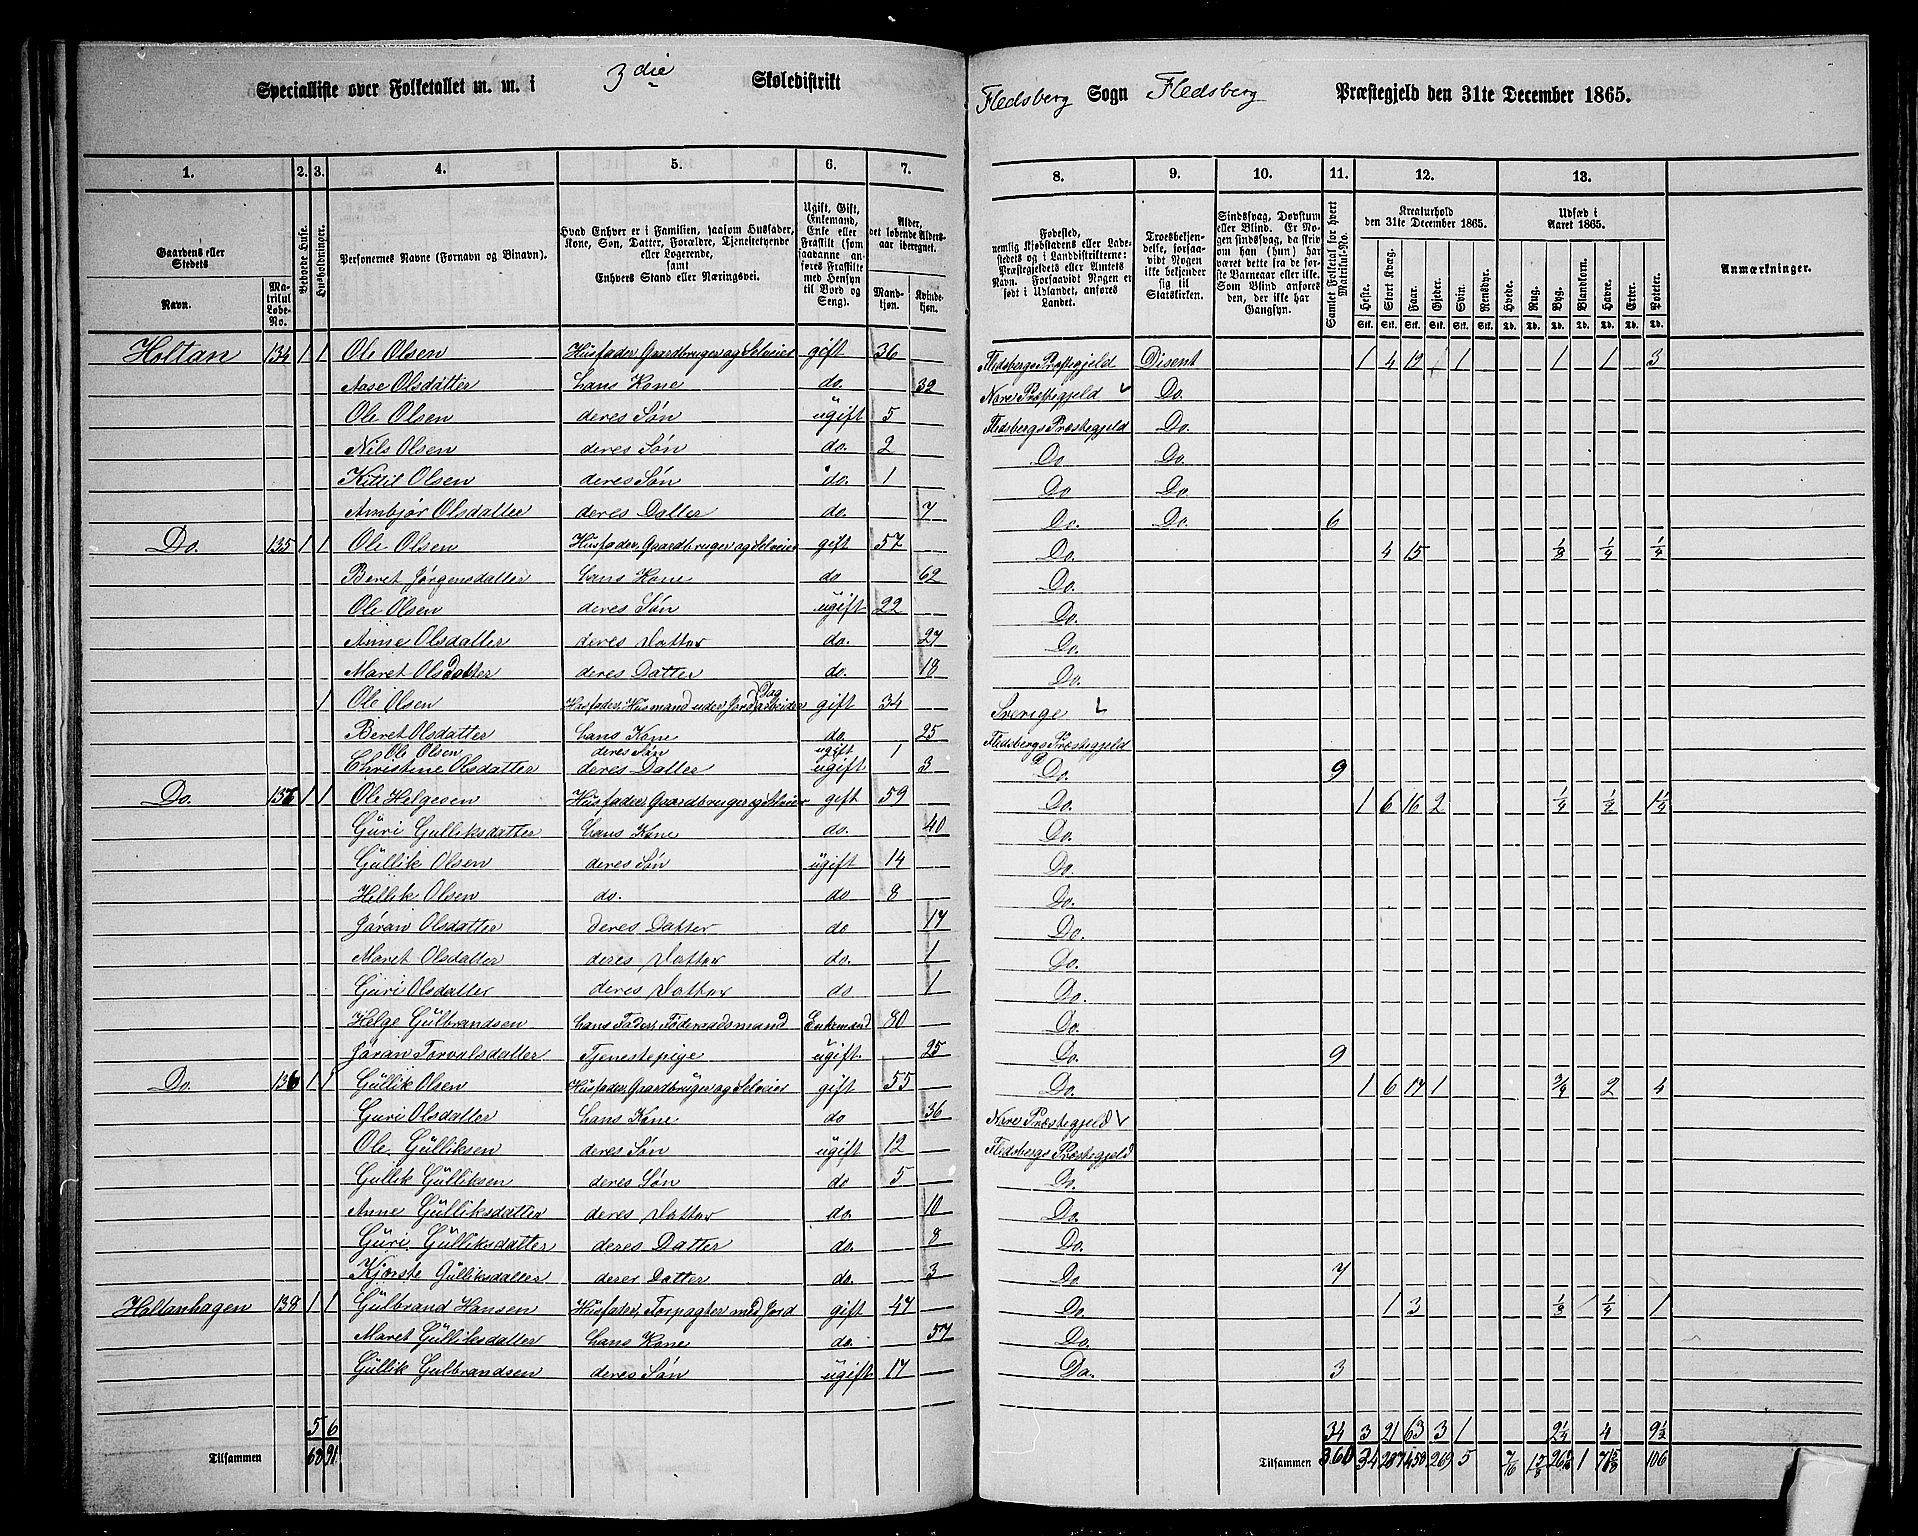 Specialliste over Folketallet m. m. i 3die Skoledistrikt Fledsberg Sogn Fledsberg Præstegjeld den 31te December 1865.
1. 2. 3. 4. 5. 6. 7. 8. 9. 10. 11. 12. 13.
Gaardens eller Stedets Navn. Matrikul Løbe-No. Beboede Huse. Husholdninger. Personernes Navne (Fornavn og Binavn).
Hvad Enhver er i Familien, saasom Husfader, Kone, Søn, Datter, Forældre, Tjenestetyende eller Logerende, samt Enhvers Stand eller Næringsvei.
Ugift, Gift, Enkemand, Enke eller Fraskilt (som saadanne anføres Fraskilte med Hensyn til Bord og Seng).
Alder, det løbende Alders-aar iberegnet. Mandkjøn. Kvindekjøn.
Fødested, nemlig Kjøbstadens eller Ladestedets eller i Landdistrikterne: Præstegjeldets eller Amtets Navn. Forsaavidt Nogen er født i Udlandet, anføres Landet.
Troesbekjendelse, forsaavidt Nogen ikke bekjender sig til Statskirken.
Sindssvag, Døvstum eller Blind. Er Nogen sindssvag, da skriv om han (hun) har været dette fra de første Barneaar eller ikke. Som Blind anføres den, der ikke har Gangsyn.
Samlet Folketal for hvert Matrikul-No.
Kreaturhold den 31te December 1865. Heste. Stort Kvæg. Faar. Gjeder. Svin. Rensdyr.
Udsæd i Aaret 1865. Hvede. Rug. Byg. Blandkorn. Havre. Erter. Poteter.
Anmærkninger.
Holtan 134 1 1 Ole Olsen Husfader, Gaardbruger og Selveier gift 36 Fledsbergs Præstegjeld Disent 1 4 12 1 1 1 3
Aase Olsdatter hans Kone do. 39 Nore Præstegjeld Do.
Ole Olsen deres Søn ugift 5 Fledsbergs Præstegjeld Do.
Nils Olsen deres Søn do. 2 Do Do.
Kittil Olsen deres Søn do. 1 Do Do
Ambjør Olsdatter deres Datter do. 7 Do. Do. 6
Do. 135 1 1 Ole Olsen Husfader, Gaardbruger og Selveier gift 57 Do. 4 15 1/8 1/4 1/4
Beret Jørgensdatter hans Kone do 62 Do.
Ole Olsen deres Søn ugift 22 Do.
Anne Olsdatter deres Datter do. 27 Do.
Maret Olsdatter deres Datter do. 18 Do.
1 Ole Olsen Husfader, Husmand uden Jord, Dagarbeider gift 34 Sverige
Beret Olsdatter hans Kone do 25 Fledsbergs Præstegjeld
Ole Olsen deres Søn ugift 1
Christine Olsdatter deres Datter ugift 3 Do. 9
Do. 137 1 1 Ole Helgesen Husfader, Gaardbruger og Selveier gift 59 Do. 1 6 16 2 1/4 1/2 1 1/4
Guri Gulliksdatter hans Kone do. 40 Do.
Gullik Olsen deres Søn ugift 14 Do.
Hellik Olsen do. do 8 Do.
Jøran Olsdatter deres Datter do 17 Do.
Maret Olsdatter deres Datter do. 1 Do.
Guri Olsdatter deres Datter do 1 Do.
Helge Gulbrandsen hans Fader, Føderaadsmand Enkemand 80 Do.
Jøran Torvalsdatter Tjenestepige ugift 25 Do. 9
Do. 136 1 1 Gullik Olsen Husfader, Gaardbruger og Selveier gift 55 Do. 1 6 17 1 3/4 2 4
Guri Olsdatter hans Kone do 36 Nore Præstegjeld
Ole Gulliksen deres Søn ugift 12 Fledsbergs Præstegjeld
Gullik Gulliksen deres Søn do 5 Do.
Anne Gulliksdatter deres Datter do. 10 Do.
Guri Gulliksdatter deres Datter do. 8 Do.
Kjerste Gulliksdatter deres Datter do. 3 Do. 7
Holtanhagen 138 1 1 Gulbrand Hansen Husfader, Forpagter med Jord gift 47 Do. 1 3 1/8 1/4 1
Maret Gulliksdatter hans Kone do. 57 Do.
Gullik Gulbrandsen deres Søn ugift 17 Do. 3
5 6 34 3 21 63 3 1 2 1/4 4 9 1/2
Tilsammen Tilsammen 360 34 5 1 106